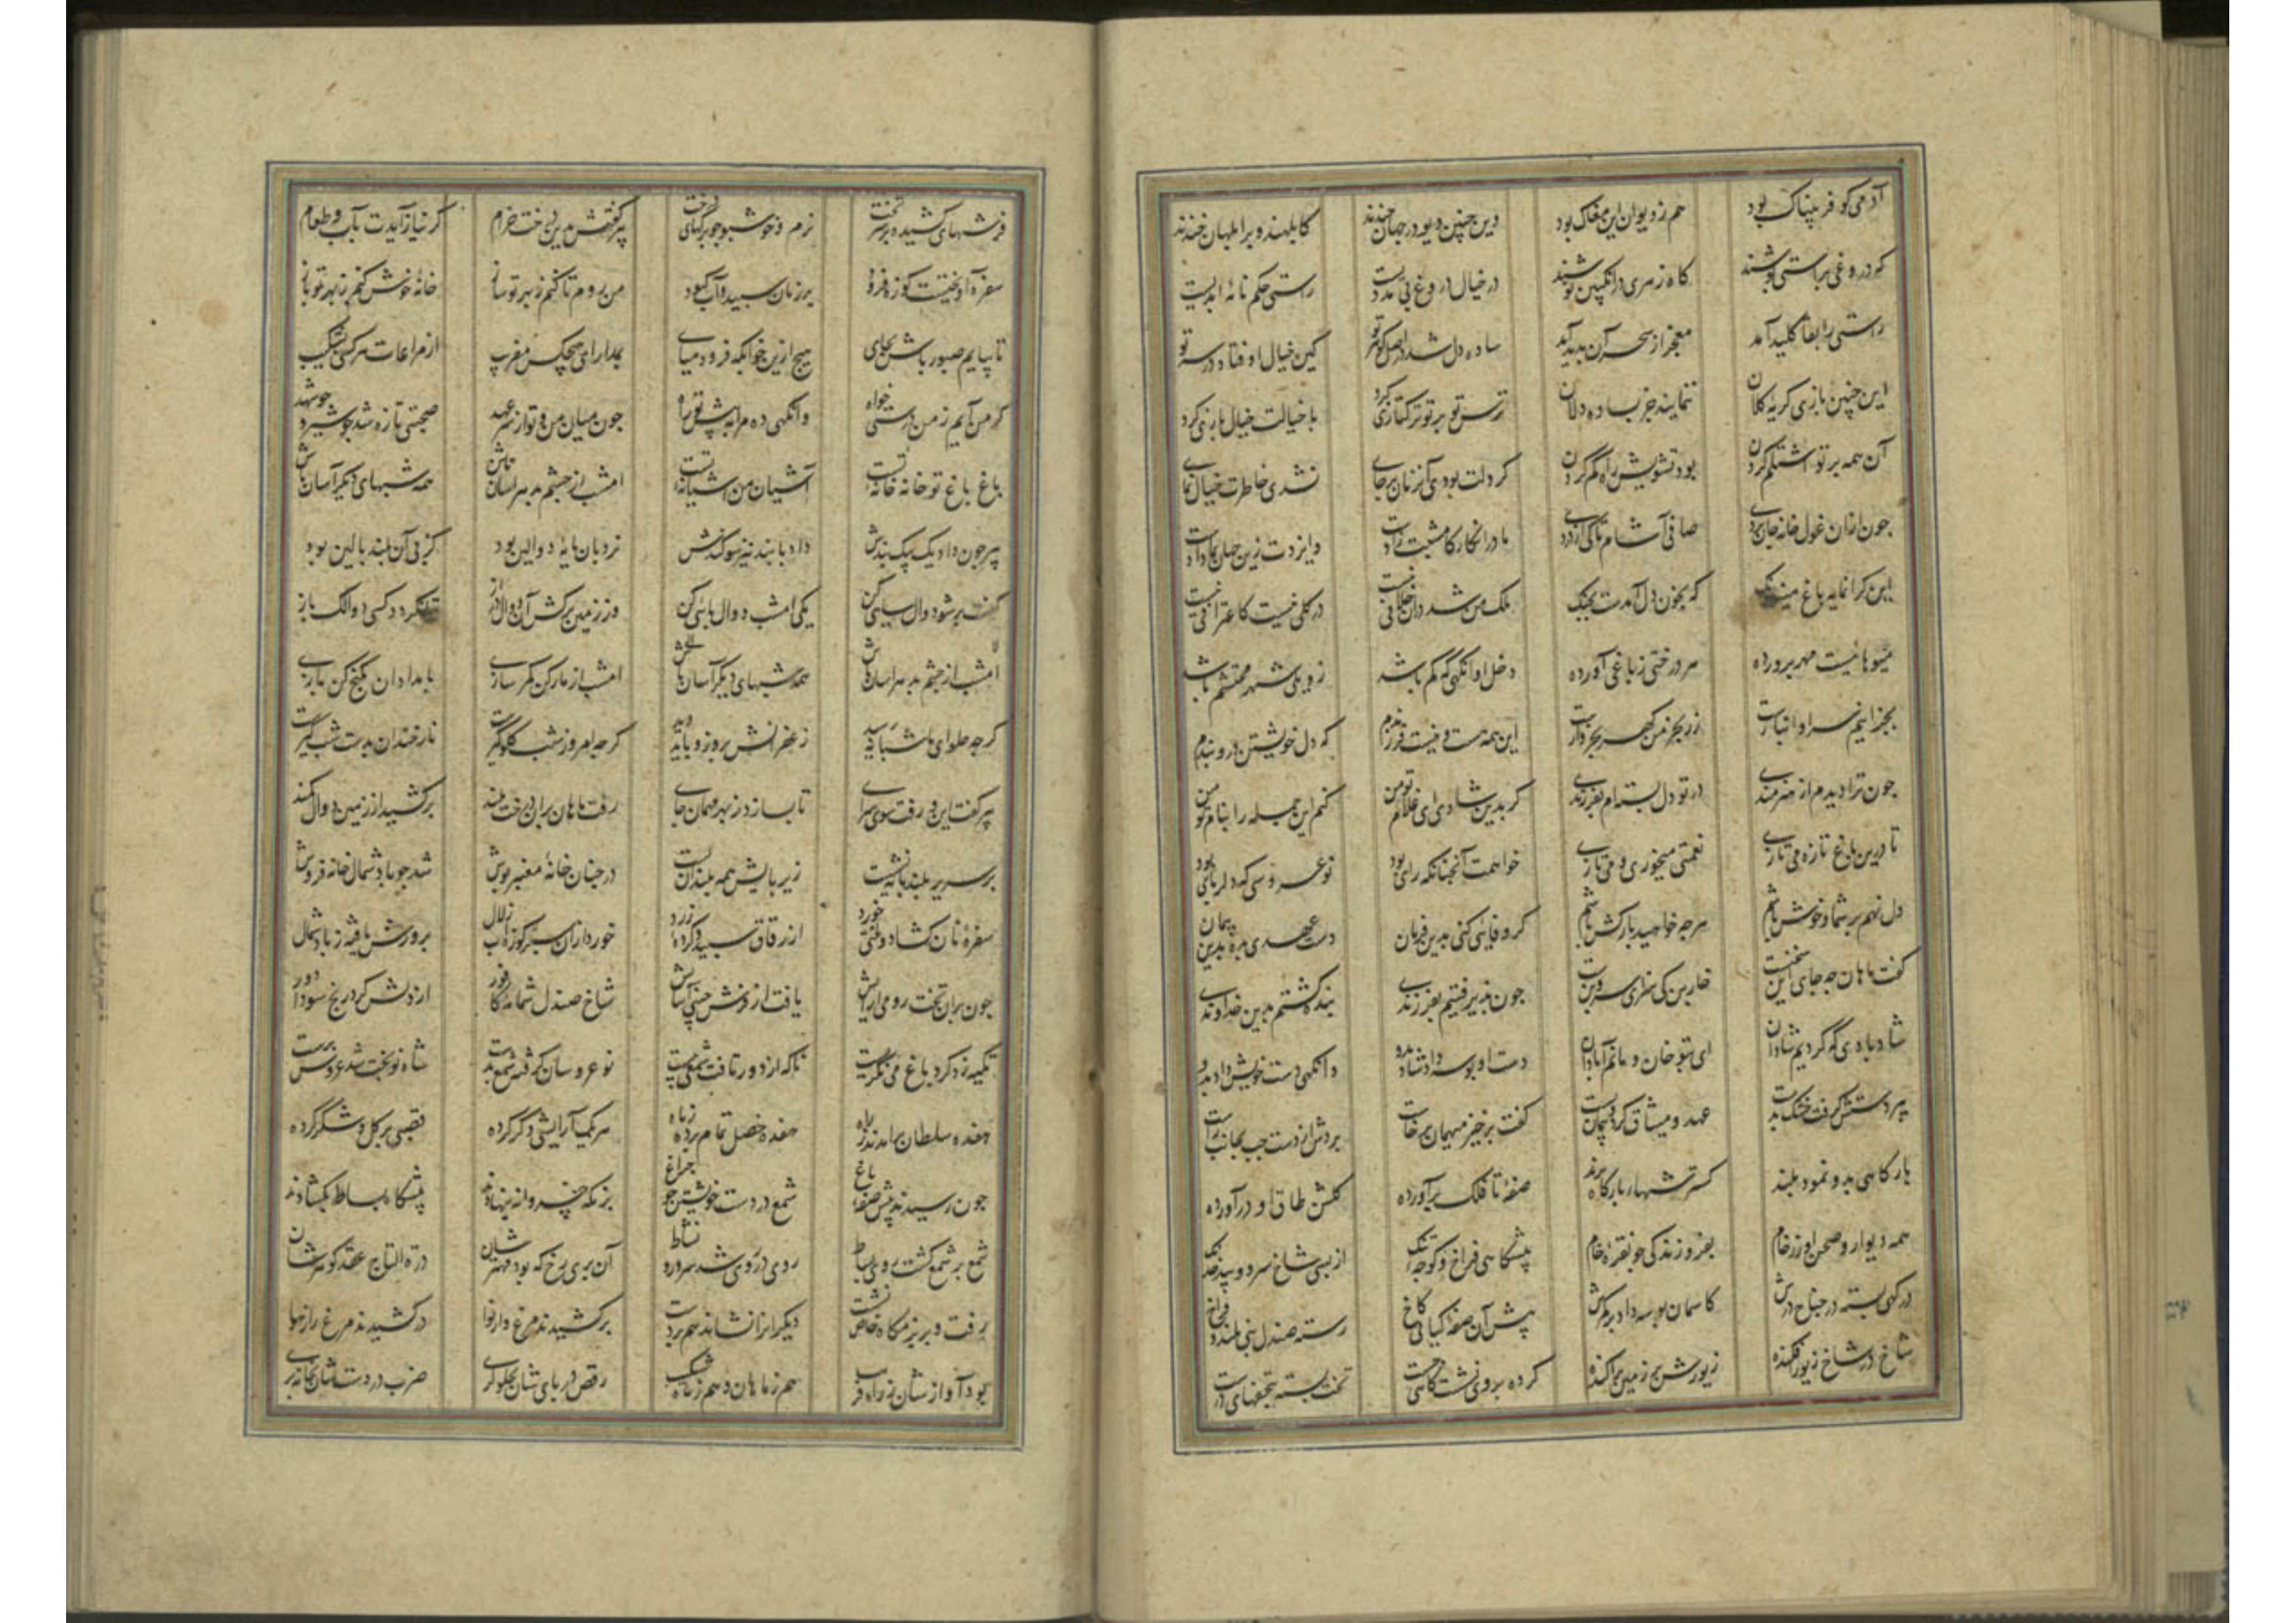 آدمی کو فریبناک بود هم ز دیوان این مغاک بود وین چنین دیو در جهان چندند کابلهند و بر ابلهان خندند
که دروغی براستی پوشند گاه زهری در انگبین نوشند در خیال دروغ بی مددیست راستی حکم نامه ابدیست
راستی را بقا کلید آمد معجز از سحر آن پدید آمد ساده دل شد در اصل گوهر تو کین خیال اوفتاد در سر تو
این چنین بازی کریه کلان ننمایند جز بساده دلان ترس تو بر تو ترکتازی کرد با خیالت خیال بازی کرد
آن همه بر تو اشتلم کردن بود تشویش راه گم کردن گر دلت بودی آن زمان بر جای نشدی خاطرت خیال نمای
چون از ان غول خانه جان بردی صافی آشام تا کی از دردی مادر انگار کامشبت زادست وایزدت زین جهان بما دادست
این گرانمایه باغ مینو رنگ که بخون دل آمدست بچنگ ملک من شد در آن خلافی نیست در گلی نیست کاعترافی نیست
میوهائیست مهر پرورده هر درختی ز باغی آورده دخل او آنگهی که کم باشد زو یکی شهر محتشم باشد
بجز اینم سرا و انبارست زر بخرمن گهر بخروارست این همه هست و نیست فرزندم که دل خویشتن درو بندم
چون ترا دیدم از هنرمندی در تو دل بسته ام بفرزندی گر بدین شادی ای غلام تو من کنم این جمله را بنام تو من
تا درین باغ تازه می تازی نعمتی میخوری و می نازی خواهمت آنچنانکه رای بود نو عروسی که دلربای بود
دل نهم بر شما و خوش باشم هرچه خواهید بارکش باشم گر وفایی کنی بدین فرمان دست عهدی بده بدین پیمان
گفت ماهان چه جای این سخنست خاربن کی سزای سروبنست چون پذیرفتیم بفرزندی بنده گشتم بدین خداوندی
شاد بادی که کردیم شادان ای بتو خان و مانم آبادان دست او بوسه داد شاد بدو وانگهی دست خویش داد بدو
پیر دستش گرفت خنک بدست عهد و میثاق کرد و پیمان بست گفت برخیز میهمان برخاست بردش از دست چپ بجانب راست
بارگاهی بدو نمود بلند گسترشهای بارگاه پرند صفه تا فلک برآورده گلشن طاق او درآورده
همه دیوار و صحن او ز رخام بفروزندگی چو نقره خام پیشگاهی فراخ و کوچه تنگ از بسی شاخ سرو و بید خدنگ
درگهی بسته در جناح درش کاسمان بوسه داد بر کمرش پیش آن صفه کیانی کاخ رسته صندل بنی بلند و فراخ
شاخ در شاخ زیور افکنده زیورش بر زمین پراکنده کرده بر وی نشستگاهی چست تخت بسته بتختهای درست
فرشهای کشیده بر سر تخت نرم و خوشبو چو برگهای درخت پیر گفتش بدین درخت خرام گر نیاز آیدت بآب و طعام
سفره آویختست کوزه فرو پر ز نان سپید و آب کبود من روم تا کنم ز بهر تو ساز خانه خوش کنم ز بهر تو باز
تا نیایم صبور باش بجای هیچ ازین خوابگه فرود میای بمدارای هیچکس مفریب از مراعات هر کسی بشکیب
گر من آیم ز من درستی خواه وانگهی ده مرا به پیش تو راه چون میان من و تو از سر عهد صحبتی تازه شد چو شیر و چو شهد
باغ باغ تو خانه خانه تست آشیان من آشیانه تست امشب از چشم بد هراسان باش همه شبهای دیگر آسان باش
پیر چون داد یک بیک پندش داد با پند نیز سوگندش نردبان پایه دوالین بود کز پی آن بلند بالین بود
گفت بر شو دوال سایی کن یکی امشب دوال پایی کن وز زمین بر کش آن دوال دراز تا نگردد کسی دوالک باز
امشب از چشم بد هراسان باش همه شبهای دیگر آسان باش امشب از مار کن کمر سازی بامدادان بگنج کن بازی
گرچه حلوای ما شبانه رسید زعفرانش بروز باید دید گرچه امروز شب گلوگیرست نار خندان بدست شبگیرست
پیر گفت این و رفت سوی سرای تا بسازد ز بهر مهمان جای رفت ماهان بر آن درخت بلند برکشید از زمین دوال کمند
بر سریر بلند پایه نشست زیر پایش همه بلندان پست در چنان خانه معنبر پوش شد چو باد شمال خانه فروش
سفره نان گشاد و لختی خورد از رقاق سپید و گرده زرد خورد از آن سبز کوزه آب زلال پرورش یافته ز باد شمال
چون بر آن تخت رومی آرایش یافت از فرش چینی آسایش شاخ صندل شمامه کافور از دلش کرد رنج سودا دور
تکیه زد گرد باغ می نگریست ناگه از دور تافت شمعی بیست نو عروسان گرفته شمع بدست شاه نو تخت شد عروس پرست
هفده سلطان برآمدند ز راه هفده خصل تمام برده ز ماه هر یکی آرایشی دگر کرده قصبی بر گل و شکر کرده
چون رسیدند پیش صفه باغ شمع در دست خویشتن چو چراغ بزمگه خسروانه بنهادند پیشگاه بساط بگشادند
شمع بر شمع گشت روی بساط روی در روی شد سرور و نشاط آن پری رخ که بود مهترشان درة التاج عقد گوهرشان
رفت و بر بزمگاه خاص نشست دیگرانرا نشاند هم بر دست برکشیدند مرغ وار نوا درکشیدند مرغ را ز هوا
بود آواز شان ز راه فریب هم ز ماهان و هم ز ماه شکیب رقص در پای شان بچلوکری ضرب در دست شان بخانه بری